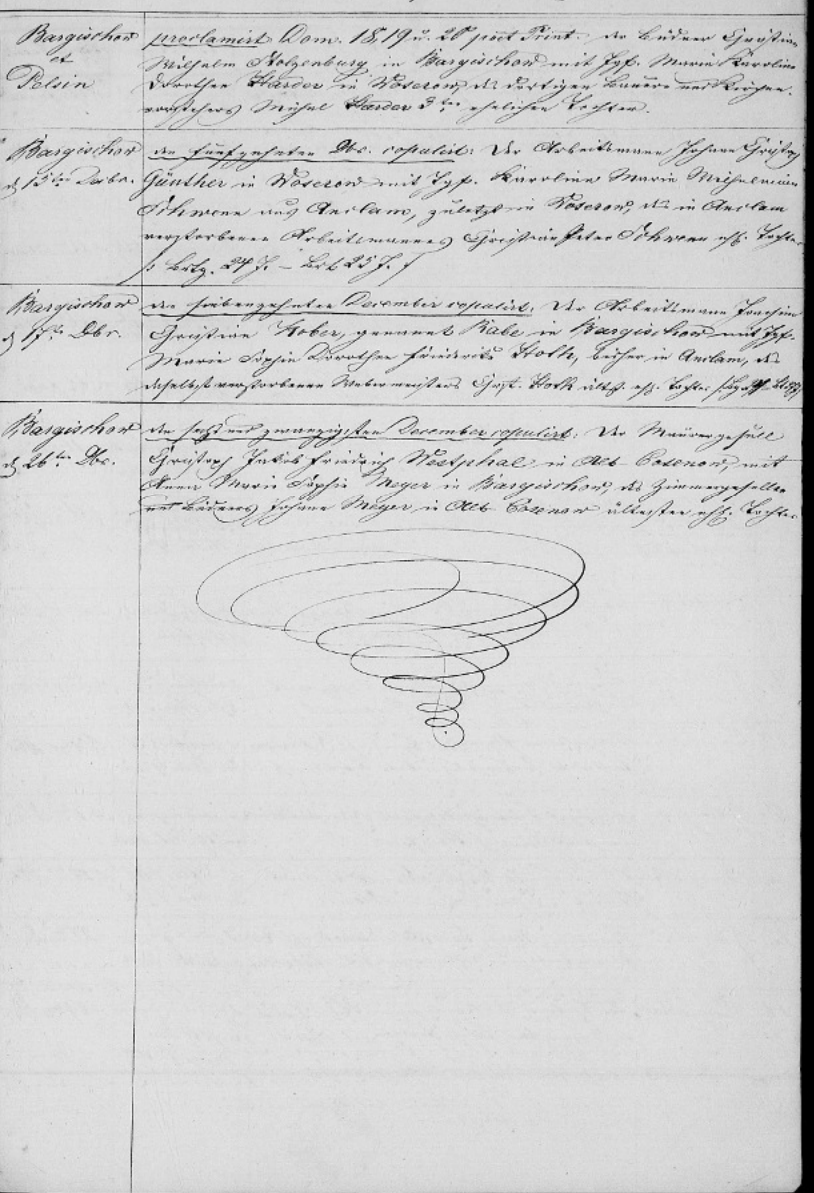 Bargischow
et
Pelsin
proclamirt Dom. 18, 19 u. 20 post Trinit. der Büdner Christian
Wilhelm Stolzenburg in Bargischow mit Jgf. Marie Karoline
Dorothea Harder in Woserow, des dortigen Bauers und Kirchen-
vorstehers Michael Harder 3ten ehelichen Tochter.
Bargischow
d 15ten Decbr.
den funfzehnten Dbr. copulirt: Der Arbeitsmann Johann Christoph
Günther in Woserow mit Jgf. Karoline Marie Wilhelmine
Schwenn aus Anclam, zuletzt in Woserow, des in Anclam
verstorbenen Arbeitsmannes Christian Peter Schwenn ehl. Tochter
/: Brtg. 27 J. – Brt 25 J. /
Bargischow
d 17ten Dbr.
den siebenzehnten December copulirt: Der Arbeitsmann Joachim
Christian Kober, genannt Rabe in Bargischow mit Jgf.
Marie Sophie Dorothea Friederike Hoth, bisher in Anclam, des
daselbst verstorbenen Webermeisters Christ. Hoth ältest. ehl. Tochter
Bargischow
d 26ten Dbr.
den sechs und zwanzigsten December copulirt: Der Maurergesell
Christoph Jakob Friedrich Westphal in Alt-Cosenow, mit
Anna Marie Sophie Meyer in Bargischow, des Zimmergesellen
und Büdners Johann Meyer in Alt-Cosenow ältesten ehl. Tochter